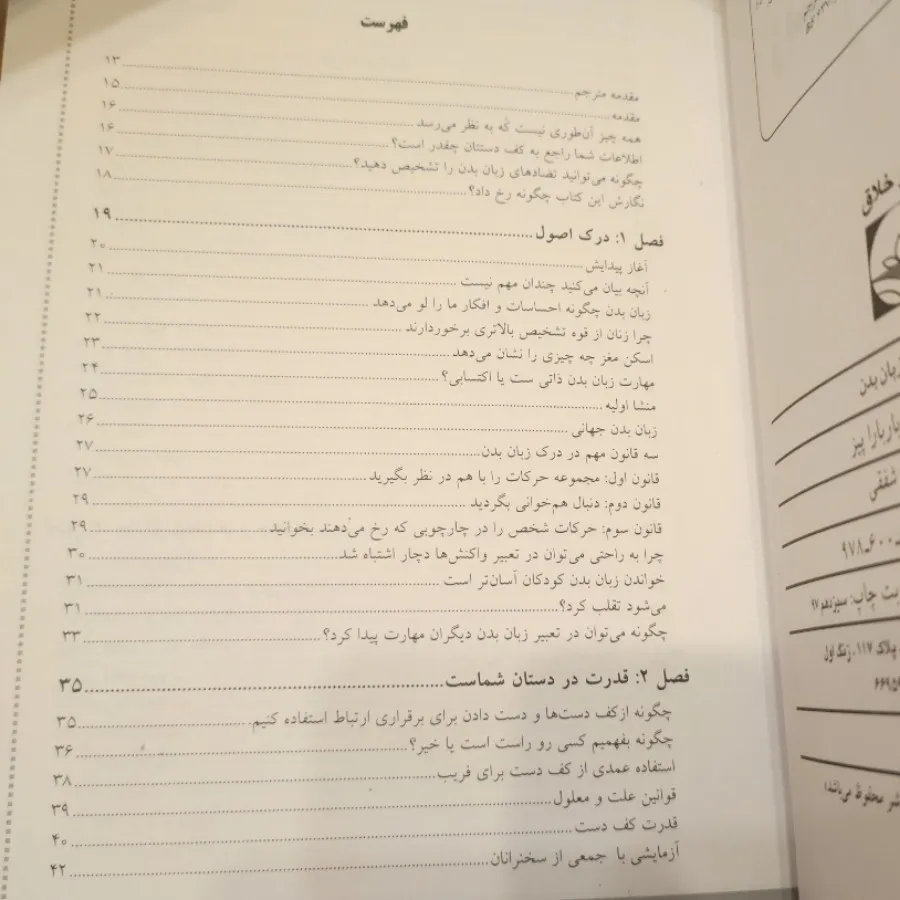 فهرست
مقدمه مترجم ۱۳
مقدمه ۱۵
همه چیز آن‌طوری نیست که به نظر می‌رسد ۱۶
اطلاعات شما راجع به کف دستتان چقدر است؟ ۱۶
چگونه می‌توانید تضادهای زبان بدن را تشخیص دهید؟ ۱۷
نگارش این کتاب چگونه رخ داد؟ ۱۸
فصل ۱: درک اصول ۱۹
آغاز پیدایش ۲۰
آنچه بیان می‌کنید چندان مهم نیست ۲۱
زبان بدن چگونه احساسات و افکار ما را لو می‌دهد ۲۱
چرا زنان از قوه تشخیص بالاتری برخوردارند ۲۲
اسکن مغز چه چیزی را نشان می‌دهد ۲۳
مهارت زبان بدن ذاتی ست یا اکتسابی؟ ۲۴
منشا اولیه ۲۵
زبان بدن جهانی ۲۶
سه قانون مهم در درک زبان بدن ۲۷
قانون اول: مجموعه حرکات را با هم در نظر بگیرید ۲۷
قانون دوم: دنبال هم‌خوانی بگردید ۲۹
قانون سوم: حرکات شخص را در چارچوبی که رخ می‌دهند بخوانید ۲۹
چرا به راحتی می‌توان در تعبیر واکنش‌ها دچار اشتباه شد ۳۰
خواندن زبان بدن کودکان آسان‌تر است ۳۱
می‌شود تقلب کرد؟ ۳۱
چگونه می‌توان در تعبیر زبان بدن دیگران مهارت پیدا کرد؟ ۳۳
فصل ۲: قدرت در دستان شماست ۳۵
چگونه ازکف دست‌ها و دست دادن برای برقراری ارتباط استفاده کنیم. ۳۵
چگونه بفهمیم کسی رو راست است یا خیر؟ ۳۶
استفاده عمدی از کف دست برای فریب ۳۸
قوانین علت و معلول ۳۹
قدرت کف دست ۴۰
آزمایشی با جمعی از سخنرانان ۴۲
خلاق
زبان بدن
باربارا پیز
شفقی
۹۷۸-۶۰۰-
بت چاپ: سیزدهم ۹۷
پلاک ۱۱۷، زنگ اول
۶۶۹۵
شر محفوظ می‌باشد)